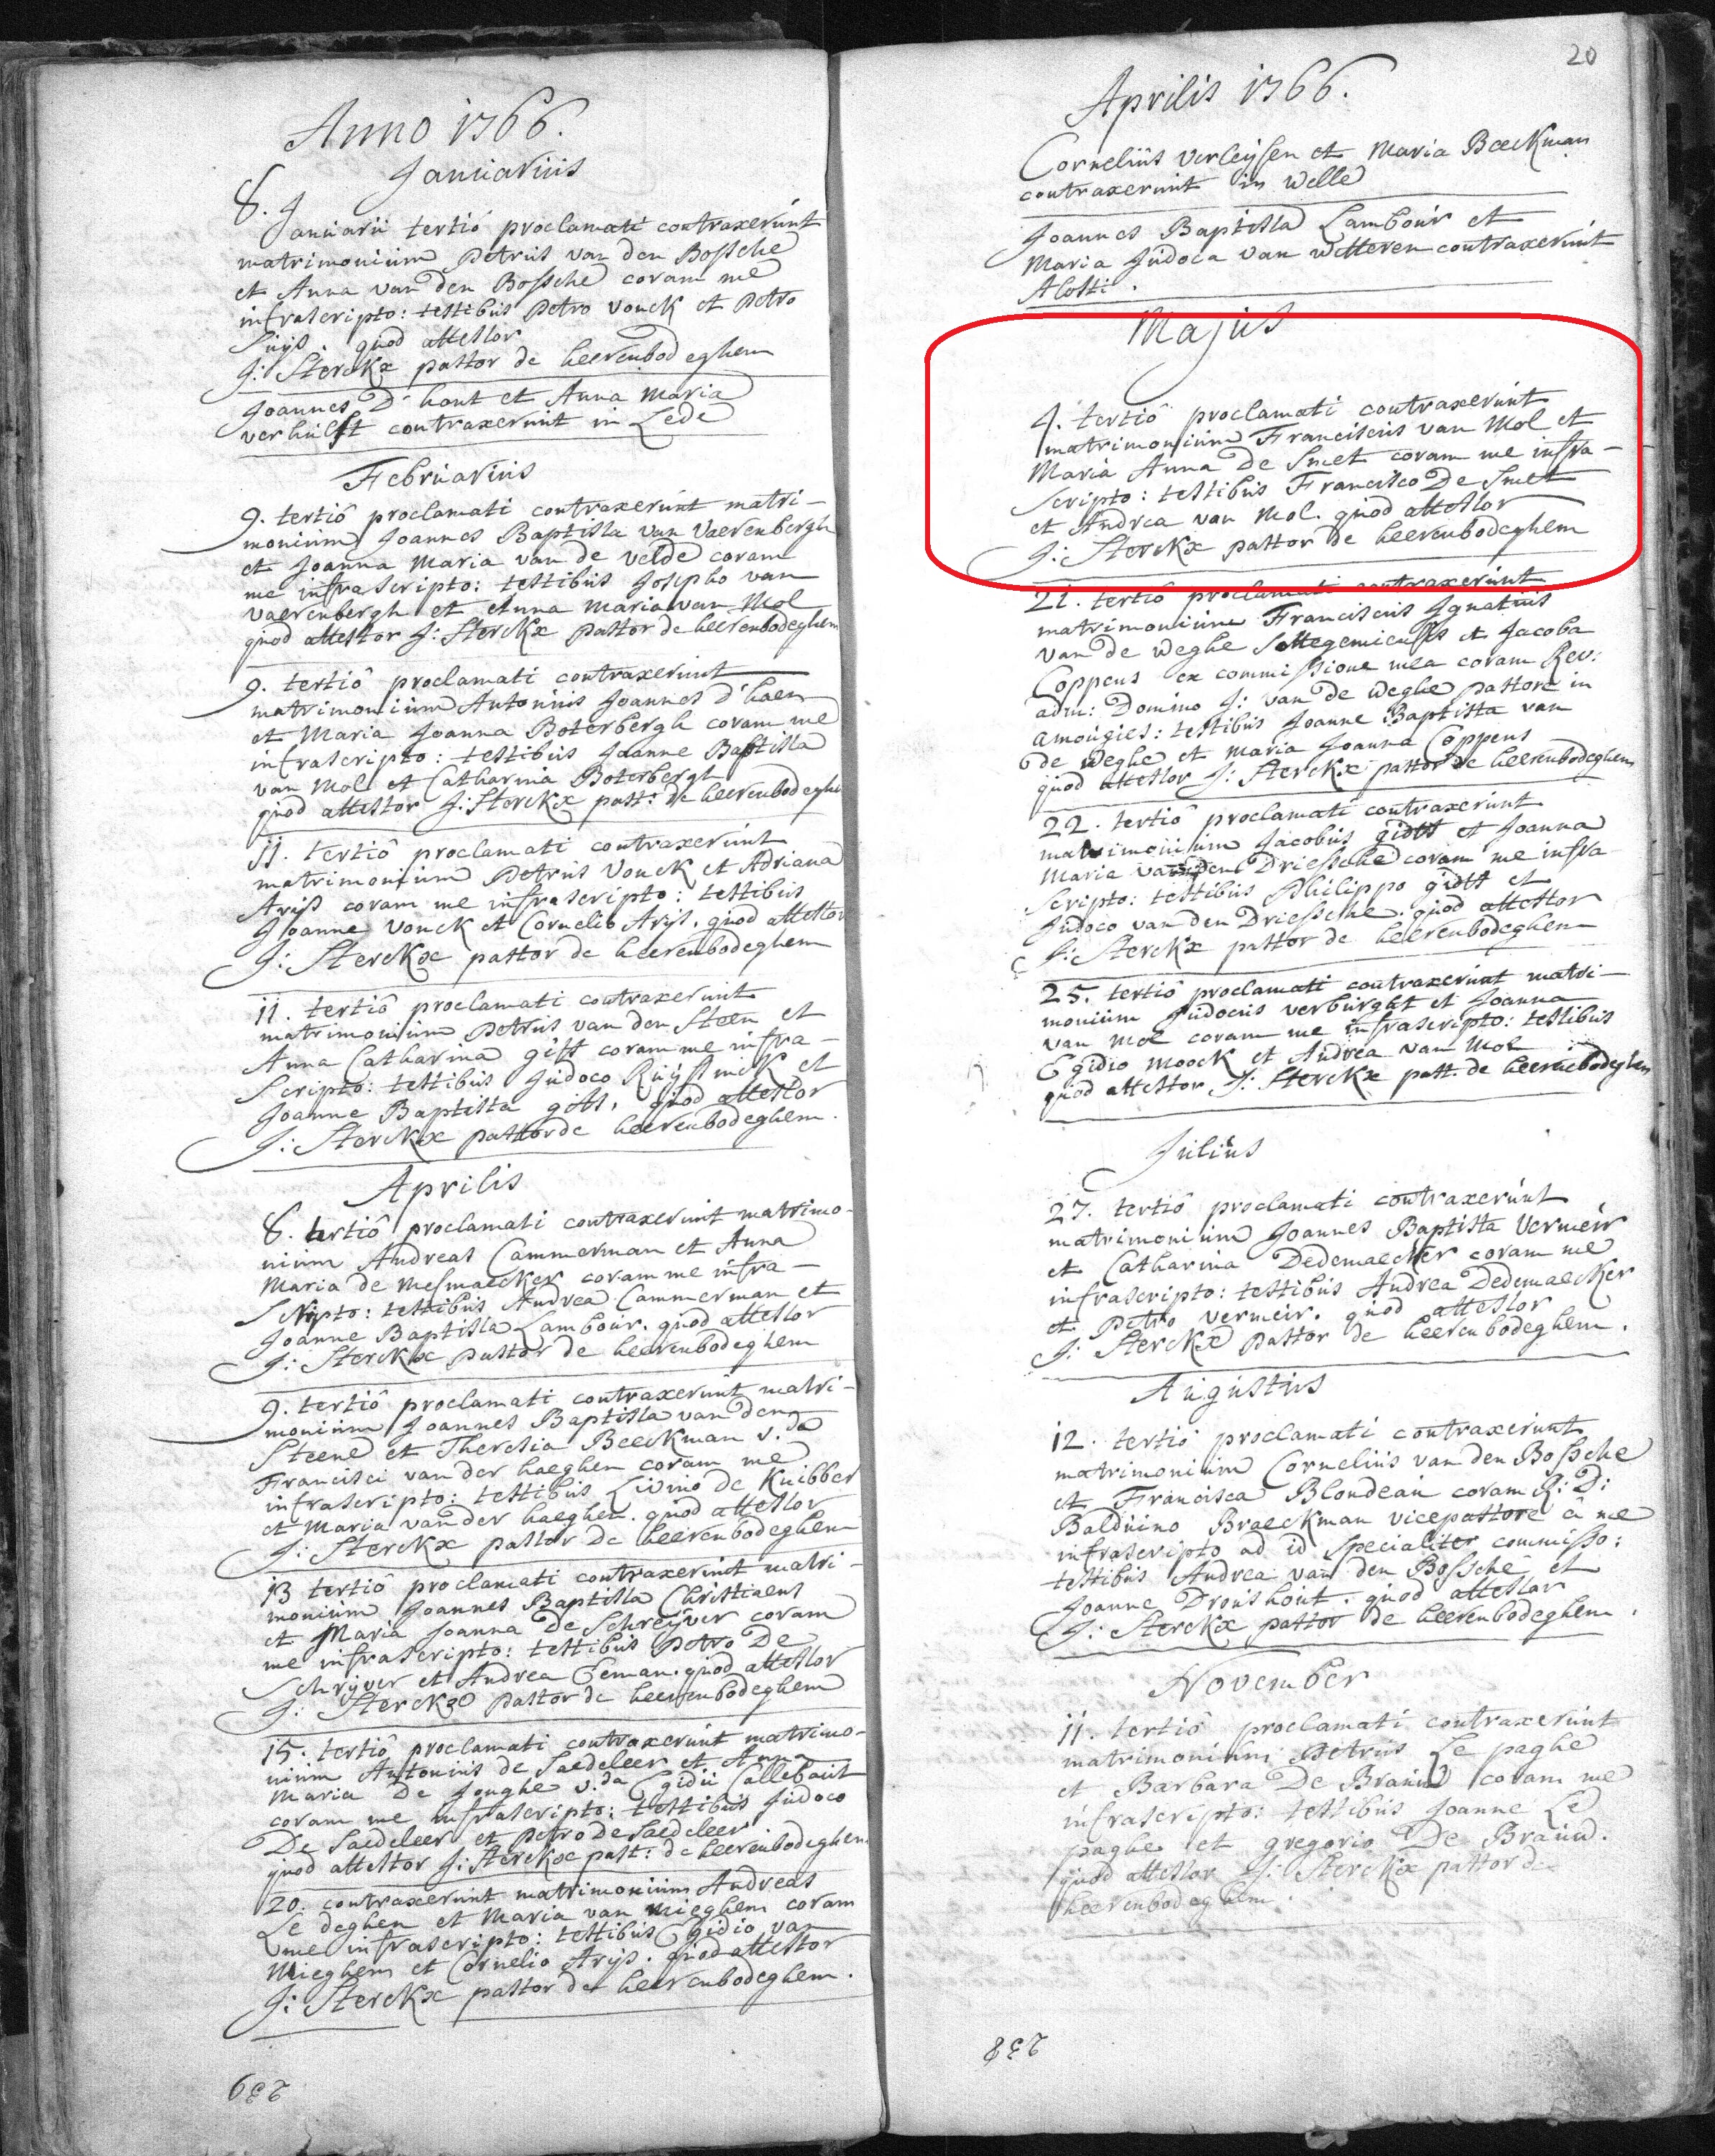 Anno 1766.
Januarius
8. Januarii tertiò proclamati contraxerunt
matrimonium Petrus van den Bossche
et Anna van den Bossche coram me
infrascripto: testibus Petro Vonck et Petro
Suijs. quod attestor
J: Sterckx pastor de heerenbodeghem
Joannes D'hont et Anna Maria
verhulst contraxerunt in Lede
Februarius
9. tertiò proclamati contraxerunt matri-
monium Joannes Baptista van Vaerenbergh
et Joanna Maria van de velde coram
me infrascripto: testibus Josepho van
vaerenbergh et Anna Maria van Mol
quod attestor J: Sterckx pastor de heerenbodeghem
9. tertiò proclamati contraxerunt
matrimonium Antonius Joannes D'haen
et Maria Joanna Boterbergh coram me
infrascripto: testibus Joanne Baptista
van Mol et Catharina Boterbergh
quod attestor J: Sterckx past: de heerenbodeghe
11. tertiò proclamati contraxerunt
matrimonium Petrus Vonck et Adriana
Arijs coram me infrascripto: testibus
Joanne Vonck et Cornelio Arijs. quod attestor
J: Sterckx pastor de heerenbodeghem
11. tertiò proclamati contraxerunt
matrimonium Petrus van den Steen et
Anna Catharina gist coram me infra-
scripto: testibus Judoco Ruijstinck et
Joanne Baptista quod attestor
J: Sterckx pastor de heerenbodeghem.
Aprilis
8. tertiò proclamati contraxerunt matrimo-
nium Andreas Cammerman et Anna
Maria de Mesmaecker coram me infra-
scripto: testibus Andrea Cammerman et
Joanne Baptista Lambour. quod attestor
J: Sterckx pastor de heerenbodeghem
9. tertiò proclamati contraxerunt matri-
monium Joannes Baptista van den
Steene et Theresia Beeckman v.da
Francisci van der haeghen coram me
infrascripto: testibus Livino de Knibber
et Maria van der haeghen. quod attestor
J: Sterckx pastor de heerenbodeghem
13 tertiò proclamati contraxerunt matri-
monium Joannes Baptista Christiaens
et Maria Joanna De Schrijver coram
me infrascripto: testibus Petro De
Schrijver et Andrea Ceman. quod attestor
J: Sterckx pastor de heerenbodeghem
15. tertiò proclamati contraxerunt matrimo-
nium Antonius de Saedeleer et Anna
Maria De Jonghe v.da Egidii Callebaut
coram me infrascripto: testibus Judoco
De Saedeleer et Petro De Saedeleer
quod attestor J: Sterckx past: de heerenbodeghem
20. contraxerunt matrimonium Andreas
Le deghen et Maria van Mieghem coram
me infrascripto: testibus Egidio van
Mieghem et Cornelio Arijs. quod attestor
J: Sterckx pastor de heerenbodeghem.
239
20
Aprilis 1766.
Cornelius verleijsen et Maria Beeckman
contraxerunt in Welle
Joannes Baptista Lambour et
Maria Judoca van Wetteren contraxerunt
Alosti.
Majus
4. tertiò proclamati contraxerunt
matrimonium Franciscus van Mol et
Maria Anna De Smet coram me infra-
scripto: testibus Francisco De Smet
et Andrea van Mol. quod attestor
J: Sterckx pastor de heerenbodeghem
21. tertiò proclamati contraxerunt
matrimonium Franciscus Ignatius
van de weghe Sottegemiensis et Jacoba
Coppens ex commissione mea coram Rev:
adm: Domino J: van de weghe pastore in
amougies: testibus Joanne Baptista van
de weghe et Maria Joanna Coppens
quod attestor J: Sterckx pastor de heerenbodeghem
22. tertiò proclamati contraxerunt
matrimonium Jacobus et Joanna
Maria van den Driessche coram me infra
scripto: testibus Philippo et
Judoco van den Driessche. quod attestor
J: Sterckx pastor de heerenbodeghem
25. tertiò proclamati contraxerunt matri-
monium Judocus verburght et Joanna
van Mol coram me infrascripto: testibus
Egidio Moock et Andrea van Mol
quod attestor J: Sterckx past: de heerenbodeghem
Julius
27. tertiò proclamati contraxerunt
matrimonium Joannes Baptista Vermeir
et Catharina Dedemaecker coram me
infrascripto: testibus Andrea Dedemaecker
et Petro Vermeir. quod attestor
J: Sterckx pastor de heerenbodeghem.
Augustus
12. tertiò proclamati contraxerunt
matrimonium Cornelius van den Bossche
et Francisca Blondeau coram R: D:
Balduino Braeckman vicepastore à me
infrascripto ad id specialiter commisso:
testibus Andrea van den Bossche et
Joanne Droushout. quod attestor
J: Sterckx pastor de heerenbodeghem.
November
11. tertiò proclamati contraxerunt
matrimonium Petrus Le paghe
et Barbara De Brauw coram me
infrascripto: testibus Joanne Le
paghe et gregorio De Brauw.
quod attestor J: Sterckx pastor de
heerenbodeghem.
238